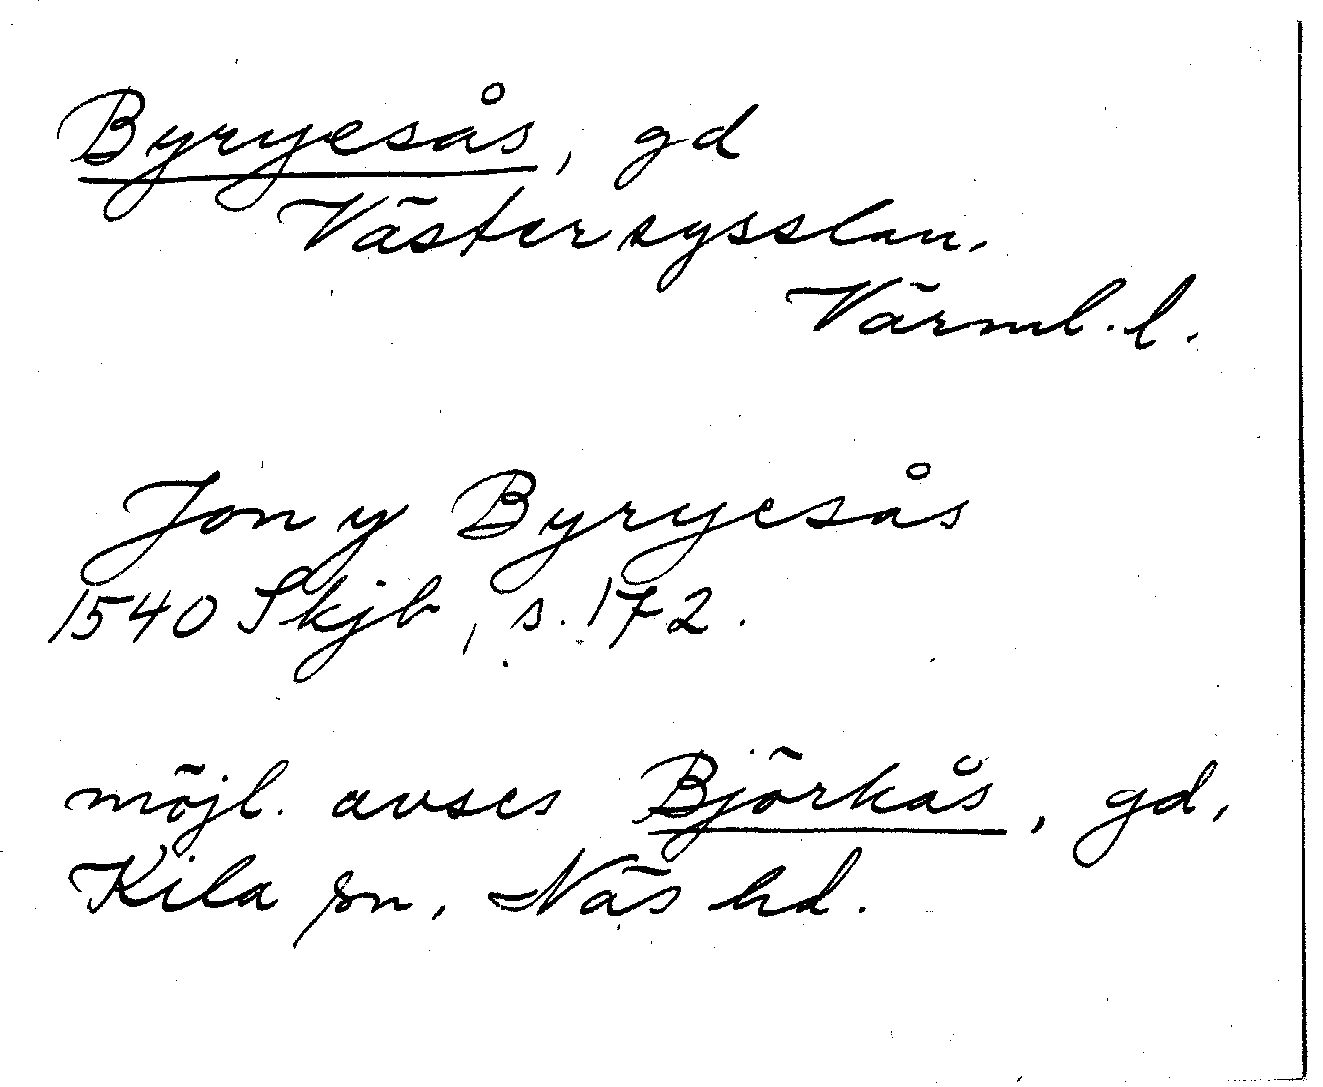 Byryesås, gd
Västersysslan.
Värml. l.
Jon y Byryesås
1540 Skjb, s. 172.
möjl. avses Björkås, gd,
Kila sn, Näs hd.